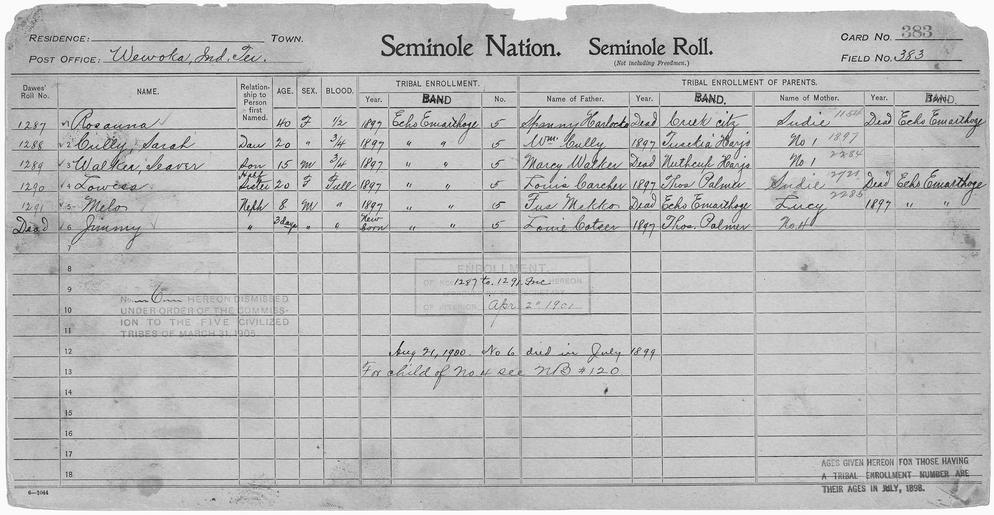 RESIDENCE: TOWN. Seminole Nation. Seminole Roll. CARD NO. 383
POST OFFICE: Wewoka, Ind. Ter. (Not including Freedmen.) FIELD NO. 383
Dawes' Roll No. NAME. Relationship to Person first Named. AGE. SEX. BLOOD. TRIBAL ENROLLMENT. TRIBAL ENROLLMENT OF PARENTS.
Year. BAND No. Name of Father. Year. BAND. Name of Mother. Year. BAND.
1287 1 Rosanna 40 F 1/2 1897 Echo Emarthoge 5 Spanny Harlocko Dead Creek city Sudie 1154 Dead Echo Emarthoge
1288 2 Cully, Sarah Dau 20 " 3/4 1897 " " 5 Wm. Cully 1897 Tuskia Harjo No 1 1897
1289 3 Walker, Seaver Son 15 M 3/4 1897 " " 5 Marcy Walker Dead Nuthcup Harjo No 1 2284
1290 4 Lowesa Half Sister 20 F Full 1897 " " 5 Louis Carcher 1897 Thos Palmer Sudie Dead Echo Emarthoge
1291 5 Melo Neph 8 M " 1897 " " 5 Fus Makko Dead Echo Emarthoge Lucy 2285 1897 " "
Dead 6 Jimmy " 2 days " " New Born " " 5 Louie Cotser 1897 Thos. Palmer No. 4
7
8
ENROLLMENT
OF HEREON
1287 to 1291 Inc
9
No. 6 HEREON DISMISSED
UNDER ORDER OF THE COMMISSION TO THE FIVE CIVILIZED
TRIBES OF MARCH 31, 1905.
10 OF INTERIOR Apr 2" 1901
11
12 Aug 21, 1900. No 6 died in July 1899
13 For child of No 4 see NB #120
14
15
16
17
18
AGES GIVEN HEREON FOR THOSE HAVING
A TRIBAL ENROLLMENT NUMBER ARE
THEIR AGES IN JULY, 1898.
6—2044